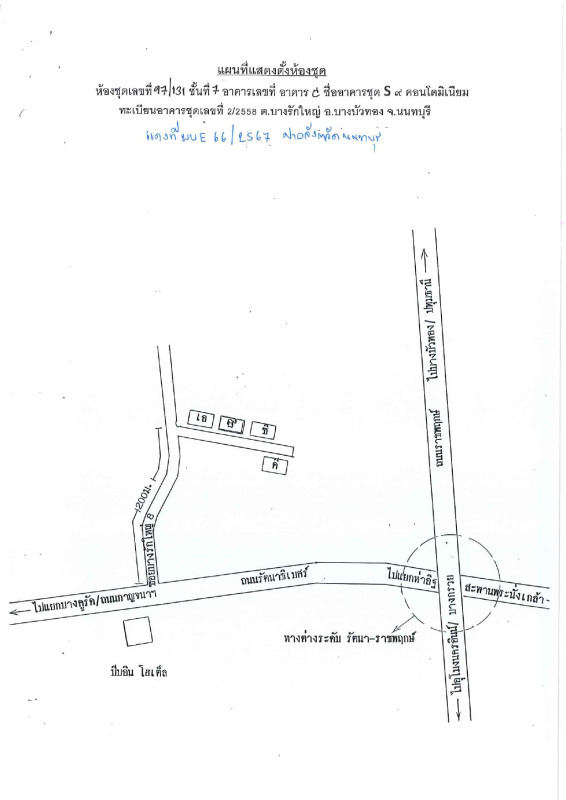 แผนที่แสดงตั้งห้องชุด
ห้องชุดเลขที่ 97/131 ชั้นที่ 7 อาคารเลขที่ อาคาร C ชื่ออาคารชุด S ๙ คอนโดมิเนียม
ทะเบียนอาคารชุดเลขที่ 2/2558 ต.บางรักใหญ่ อ.บางบัวทอง จ.นนทบุรี
66/2567
ไปบางบัวทอง/ ปทุมธานี
ถนนราชพฤกษ์
เอ
บี
ซี
ดี
1200ม.
ซอยบางรักใหญ่ 8
ถนนรัตนาธิเบศร์
ไปแยกท่าอิฐ
สะพานพระนั่งเกล้า
ไปแยกบางคูรัด/ถนนกาญจนาฯ
ทางต่างระดับ รัตนา-ราชพฤกษ์
ไปอุโมงนครอินน์/ บางกรวย
ป๊บอิน โฮเต็ล